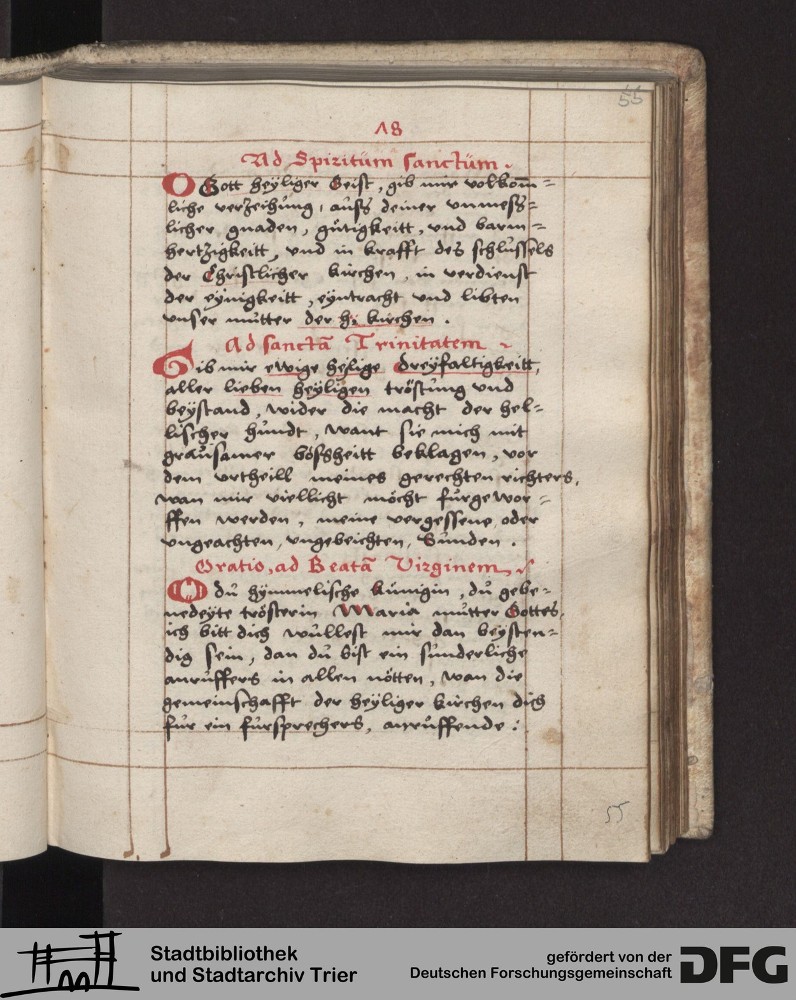 55
18
Ad Spiritům sanctům.
O Gott heÿliger Geist, gib mir volkom̅=
liche verzeihůng, aůß deiner unmeß=
licher gnaden, gůtigkeitt, und barm=
hertzigkeitt, und in krafft des schlůssels
der Christlicher kirchen, in verdienst
der eÿnigkeitt, eÿntracht und libten
unser můtter der h. kirchen.
Ad sanctã Trinitatem
Gib mir ewige heÿlige dreÿfaltigkeitt,
aller lieben heÿligen tröstůng und
beÿstand, wider die macht der hel=
lischer hůndt, want sie mich mit
graůsamer boßheitt beklagen, vor
dem urtheill meines gerechten richters,
wan mir viellicht möcht fůrgewor=
ffen werden, meine vergessene oder
ungeachten, ungebeichten, Sůnden.
Oratio, ad Beatã Virginem,
O dů hÿmmelische kůnigin, dů gebe=
nedeÿte trösterin Maria můtter Gottes,
ich bitt dich wůllest mir dan beÿsten=
dig sein, dan dů bist ein sůnderliche
anrůffers in allen nötten, wan die
gemeinschafft der heÿliger kirchen dich
fůr ein fůrsprechers, anrůffende:
55
Stadtbibliothek
und Stadtarchiv Trier
gefördert von der
Deutschen Forschungsgemeinschaft
DFG